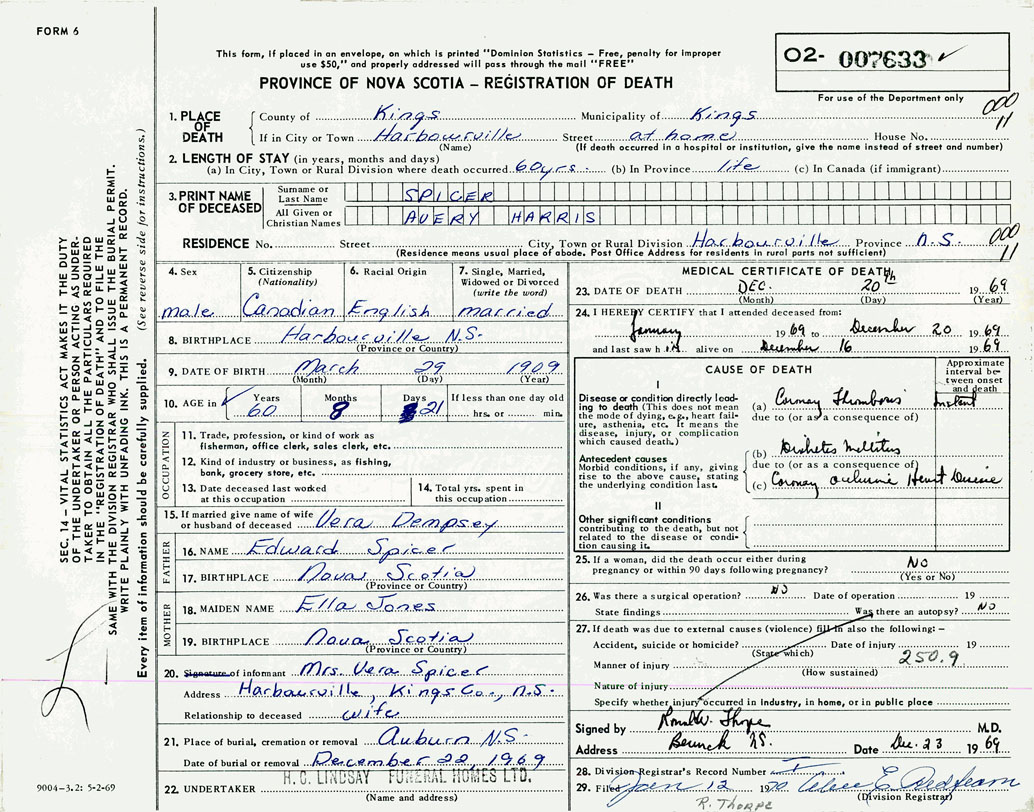 FORM 6
This form, if placed in an envelope, on which is printed "Dominion Statistics – Free, penalty for improper
use $50," and properly addressed will pass through the mail "FREE"
PROVINCE OF NOVA SCOTIA – REGISTRATION OF DEATH
O2- 007633 ✓
For use of the Department only
000
11
1. PLACE OF DEATH County of Kings Municipality of Kings
If in City or Town Harbourville Street at home House No.
(Name) (If death occurred in a hospital or institution, give the name instead of street and number)
2. LENGTH OF STAY (in years, months and days)
(a) In City, Town or Rural Division where death occurred 60 yrs. (b) In Province life (c) In Canada (if immigrant)
3. PRINT NAME OF DECEASED Surname or Last Name SPICER
All Given or Christian Names AVERY HARRIS
RESIDENCE No. Street City, Town or Rural Division Harbourville Province N.S. 000
11
(Residence means usual place of abode. Post Office Address for residents in rural parts not sufficient)
4. Sex male
5. Citizenship (Nationality) Canadian
6. Racial Origin English
7. Single, Married, Widowed or Divorced (write the word) married
8. BIRTHPLACE Harbourville N.S.
(Province or Country)
9. DATE OF BIRTH March 29 1909
(Month) (Day) (Year)
10. AGE in ✓ Years 60 Months 8 Days 21 If less than one day old hrs. or min.
OCCUPATION
11. Trade, profession, or kind of work as
fisherman, office clerk, sales clerk, etc.
12. Kind of industry or business, as fishing,
bank, grocery store, etc.
13. Date deceased last worked
at this occupation
14. Total yrs. spent in
this occupation
15. If married give name of wife
or husband of deceased Vera Dempsey
FATHER
16. NAME Edward Spicer
17. BIRTHPLACE Nova Scotia
(Province or Country)
MOTHER
18. MAIDEN NAME Ella Jones
19. BIRTHPLACE Nova Scotia
(Province or Country)
20. Signature of informant Mrs. Vera Spicer
Address Harbourville, Kings Co., N.S.
Relationship to deceased wife
21. Place of burial, cremation or removal Auburn N.S.
Date of burial or removal December 22, 1969
H. C. LINDSAY FUNERAL HOMES LTD.
22. UNDERTAKER
(Name and address)
MEDICAL CERTIFICATE OF DEATH
23. DATE OF DEATH DEC. 20th 1969
(Month) (Day) (Year)
24. I HEREBY CERTIFY that I attended deceased from:
January 1969 to December 20 1969
and last saw him alive on December 16 1969
CAUSE OF DEATH
Approximate interval between onset and death
I
Disease or condition directly leading to death (This does not mean the mode of dying, e.g., heart failure, asthenia, etc. It means the disease, injury, or complication which caused death.)
(a) Coronary Thrombosis Instant
due to (or as a consequence of)
Antecedent causes
Morbid conditions, if any, giving rise to the above cause, stating the underlying condition last.
(b) Diabetes Mellitus
due to (or as a consequence of)
(c) Coronary occlusive Heart Disease
II
Other significant conditions
contributing to the death, but not
related to the disease or condition causing it.
25. If a woman, did the death occur either during
pregnancy or within 90 days following pregnancy? NO
(Yes or No)
26. Was there a surgical operation? NO Date of operation 19
State findings Was there an autopsy? NO
27. If death was due to external causes (violence) fill in also the following: –
Accident, suicide or homicide? Date of injury 19
(State which)
250.9
Manner of injury
(How sustained)
Nature of injury
Specify whether injury occurred in industry, in home, or in public place
Signed by Ronald W. Thorpe M.D.
Address Berwick NS. Date Dec. 23 1969
28. Division Registrar's Record Number
29. Filed 12 1970
(Division Registrar)
R. Thorpe
SEC. 14 – VITAL STATISTICS ACT MAKES IT THE DUTY
OF THE UNDERTAKER OR PERSON ACTING AS UNDER-
TAKER TO OBTAIN ALL THE PARTICULARS REQUIRED
IN THE "REGISTRATION OF DEATH" AND TO FILE THE
SAME WITH THE DIVISION REGISTRAR WHO SHALL ISSUE THE BURIAL PERMIT.
WRITE PLAINLY WITH UNFADING INK. THIS IS A PERMANENT RECORD.
Every item of information should be carefully supplied. (See reverse side for instructions.)
9004-3.2: 5-2-69